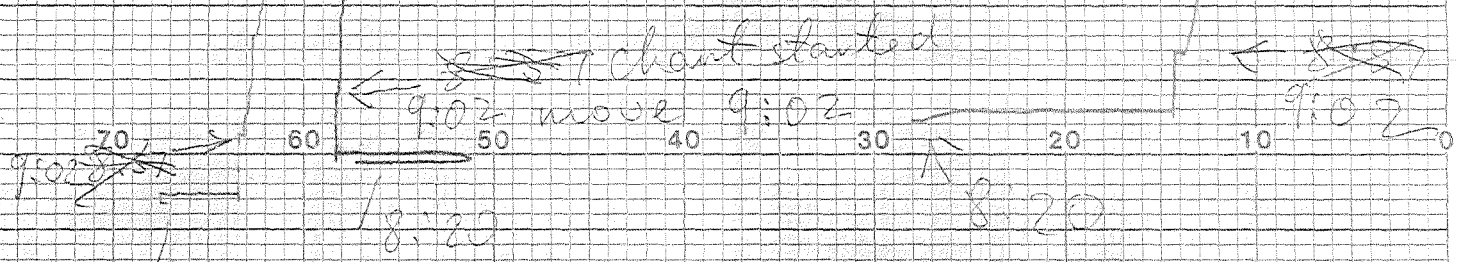 chart started
9:02 move 9:02 9:02
70 60 50 40 30 20 10 0
9:02
8:20 8:20